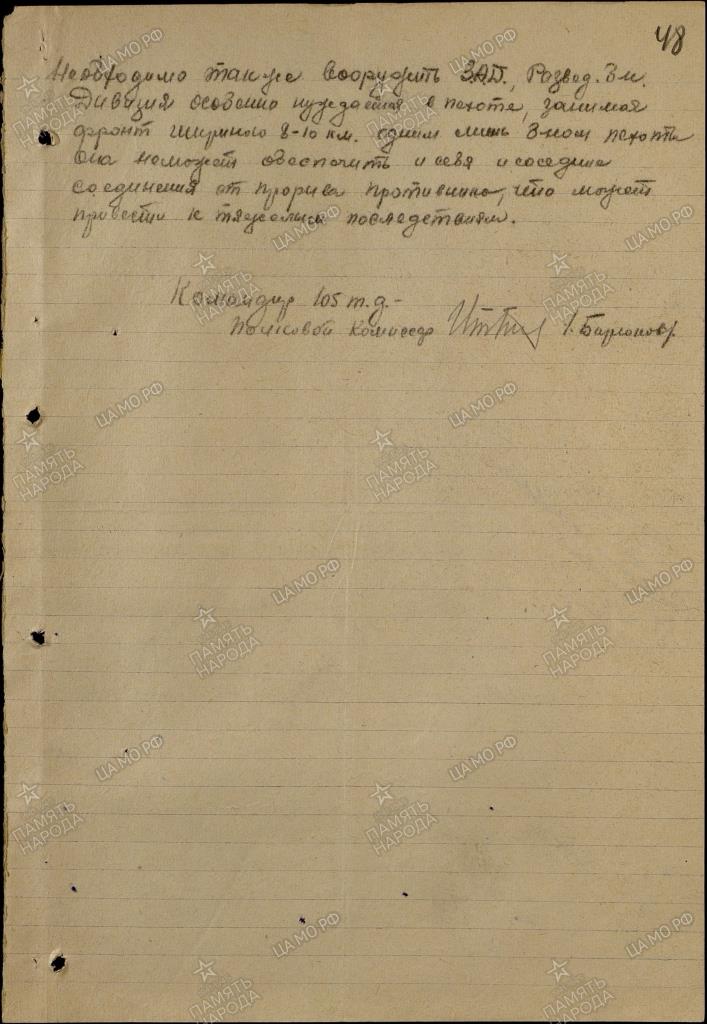 48
Необходимо также вооружить ЗАП., Развед. Б-н.
Дивизия особенно нуждается в пехоте, занимая
фронт шириною 8-10 км. одним лишь Б-ном пехоты
она неможет обеспечить и себя и соседние
соединения от прорыва противника, что может
привести к тяжелым последствиям.
Командир 105 т.д. -
Полковой комиссар
ПАМЯТЬ НАРОДА
ЦА МО РФ